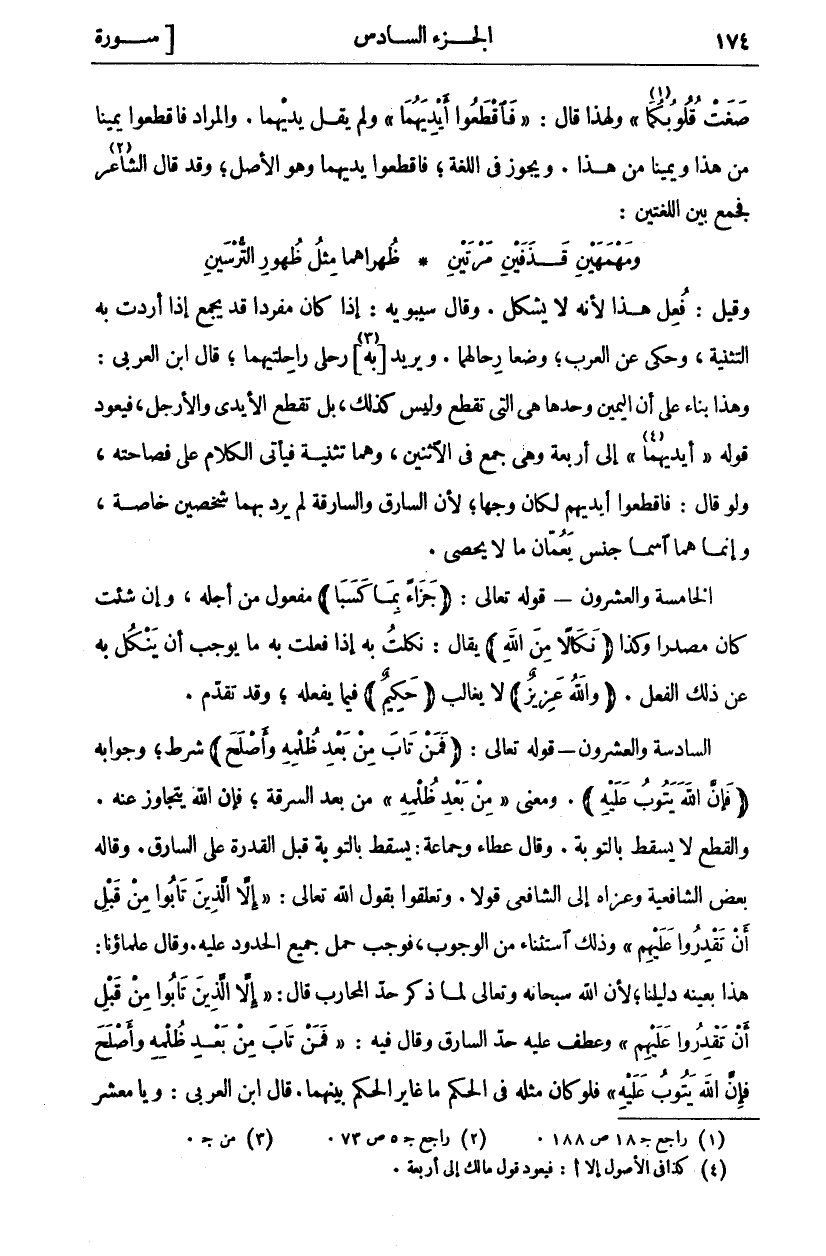 ١٧٤ الجزء السادس [ سورة
صَغَتْ قُلُوبُكُمَا (١) » ولهذا قال : « فَٱقْطَعُوا أَيْدِيَهُمَا » ولم يقل يديْهما . والمراد فاقطعوا يمينا
من هذا ويمينا من هذا . ويجوز فى اللغة ؛ فاقطعوا يديهما وهو الأصل؛ وقد قال الشاعر (٢)
فجمع بين اللغتين :
ومَهْمَهَيْنِ قَذَفَيْنِ مَرْتَيْنِ * ظُهراهما مِثلُ ظُهورِ التُّرْسَينِ
وقيل : فُعِل هذا لأنه لا يشكل . وقال سيبويه : إذا كان مفردا قد يجمع إذا أردت به
التثنية ، وحكى عن العرب؛ وضعا رِحالهما . ويريد [به] (٣) رحلى راحلتيهما ؛ قال ابن العربى :
وهذا بناء على أن اليمين وحدها هى التى تقطع وليس كذلك، بل تقطع الأيدى والأرجل، فيعود
قوله « أيديهما (٤) » إلى أربعة وهى جمع فى الآثنين ، وهما تثنية فيأتى الكلام على فصاحته ،
ولو قال : فاقطعوا أيديهم لكان وجها؛ لأن السارق والسارقة لم يرد بهما شخصين خاصة ،
وإنما هما آسما جنس يَعُمّان ما لا يحصى .
الخامسة والعشرون — قوله تعالى : ﴿ جَزَاءً بِمَا كَسَبَا ﴾ مفعول من أجله ، وإن شئت
كان مصدرا وكذا ﴿ نَكَالًا مِنَ اللهِ ﴾ يقال : نكلتُ به إذا فعلت به ما يوجب أن يَنْكُل به
عن ذلك الفعل . ﴿ واللهُ عَزِيزٌ ﴾ لا يغالب ﴿ حَكِيمٌ ﴾ فيما يفعله ؛ وقد تقدّم .
السادسة والعشرون — قوله تعالى : ﴿ فَمَنْ تَابَ مِنْ بَعْدِ ظُلْمِهِ وأَصْلَحَ ﴾ شرط؛ وجوابه
﴿ فَإِنَّ اللهَ يَتُوبُ عَلَيْهِ ﴾ . ومعنى « مِنْ بَعْدِ ظُلْمِهِ » من بعد السرقة ؛ فإن الله يتجاوز عنه .
والقطع لا يسقط بالتوبة . وقال عطاء وجماعة : يسقط بالتوبة قبل القدرة على السارق. وقاله
بعض الشافعية وعزاه إلى الشافعى قولا . وتعلقوا بقول الله تعالى : « إِلَّا الَّذِينَ تَابُوا مِنْ قَبْلِ
أَنْ تَقْدِرُوا عَلَيْهِم » وذلك آستثناء من الوجوب، فوجب حمل جميع الحدود عليه. وقال علماؤنا:
هذا بعينه دليلنا؛ لأن الله سبحانه وتعالى لما ذكر حدّ المحارب قال: « إِلَّا الَّذِينَ تَابُوا مِنْ قَبْلِ
أَنْ تَقْدِرُوا عَلَيْهِم » وعطف عليه حدّ السارق وقال فيه : « فَمَنْ تَابَ مِنْ بَعْدِ ظُلْمِهِ وأَصْلَحَ
فإِنَّ اللهَ يَتُوبُ عَلَيْهِ » فلو كان مثله فى الحكم ما غاير الحكم بينهما. قال ابن العربى : ويا معشر
(١) راجع ج ١٨ ص ١٨٨ . (٢) راجع ج ٥ ص ٧٣ . (٣) من ج .
(٤) كذا فى الأصول إلا أ : فيعود قول مالك إلى أربعة .